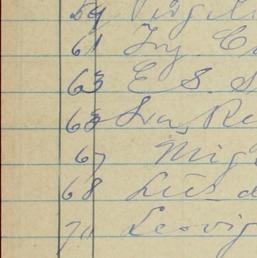 59 Virgili
61 Ivy C
63 E. S. S
65 Iva, Re
67 Mig
68 Luis d
70 Leovig